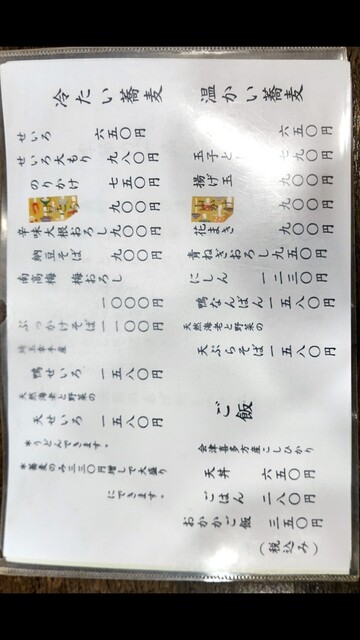 温かい蕎麦
六五〇円
玉子と 七九〇円
揚げ玉 九〇〇円
九〇〇円
花まき 九〇〇円
青ねぎおろし 九五〇円
にしん 一二三〇円
鴨なんばん 一五八〇円
天然海老と野菜の
天ぷらそば 一五八〇円
ご飯
会津喜多方産こしひかり
天丼 六五〇円
ごはん 二八〇円
おかかご飯 三五〇円
(税込み)
冷たい蕎麦
せいろ 六五〇円
せいろ大もり 九八〇円
のりかけ 七五〇円
九〇〇円
辛味大根おろし 九〇〇円
納豆そば 九〇〇円
南高梅 梅おろし
一〇〇〇円
ぶっかけそば 一一〇〇円
埼玉幸手産
鴨せいろ 一五八〇円
天然海老と野菜の
天せいろ 一五八〇円
*うどんできます。
*蕎麦のみ三三〇円増しで大盛り
にできます。